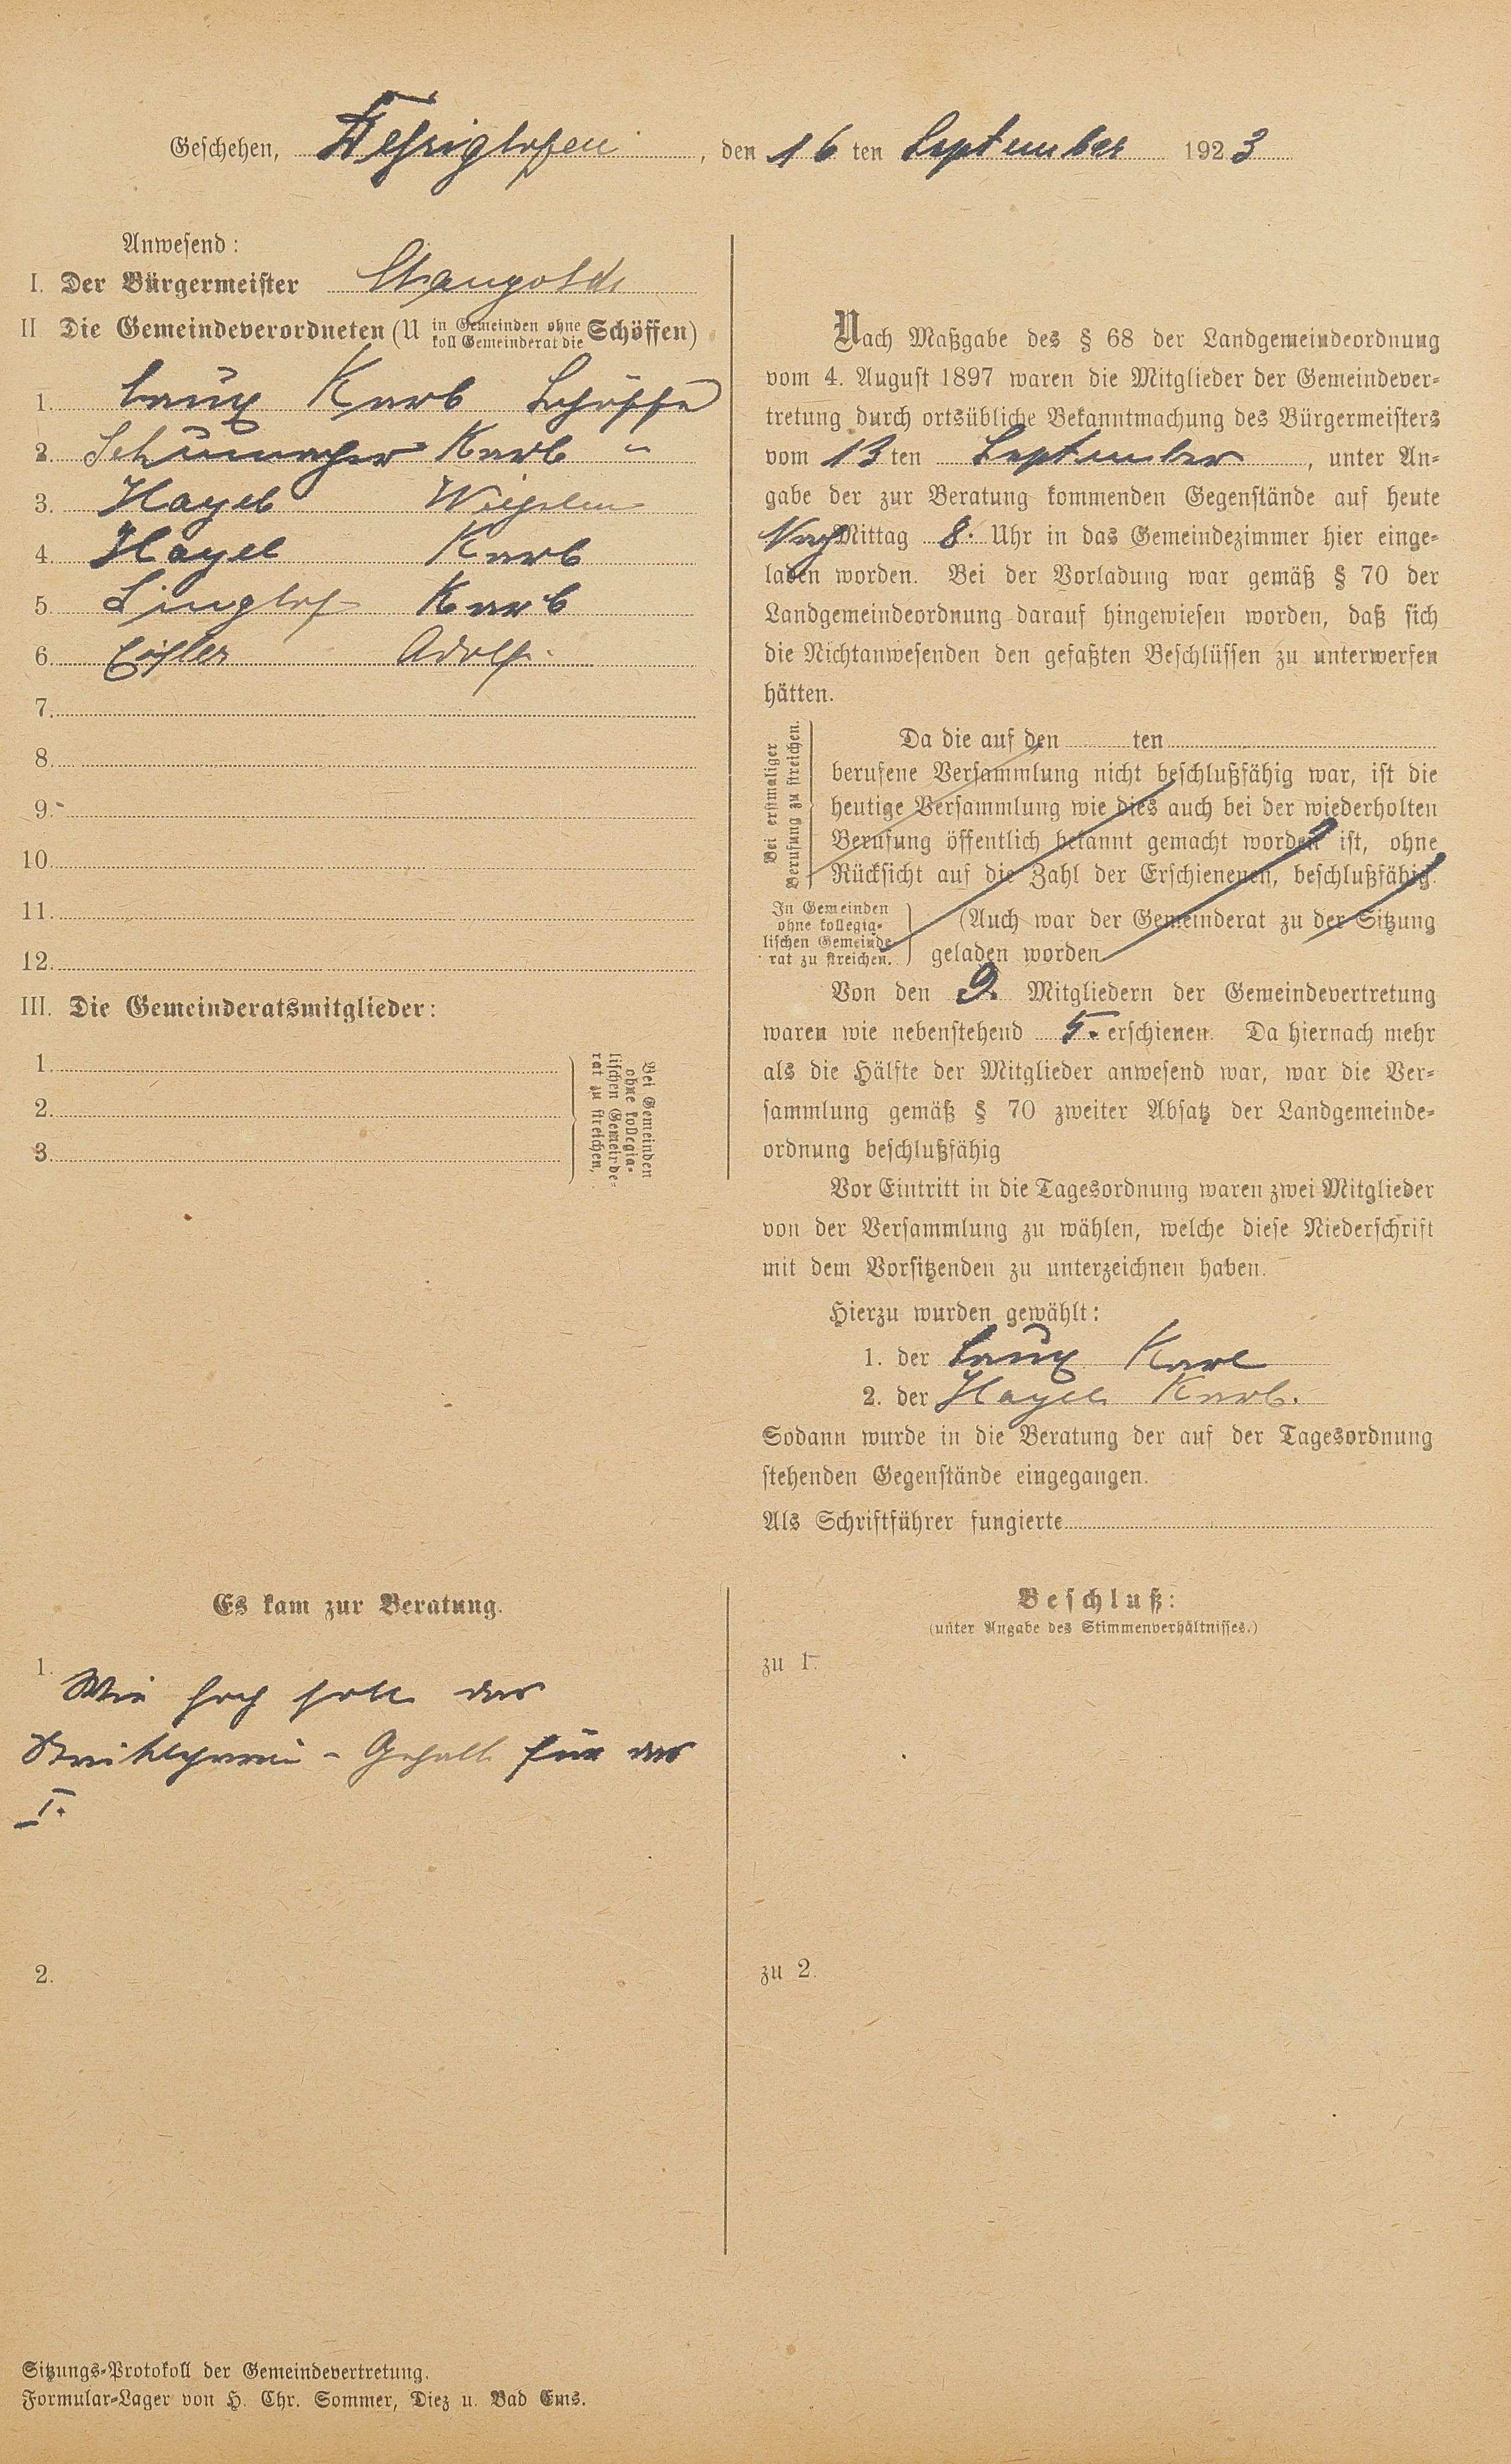 Geschehen, , den 16 ten September 1923
Anwesend:
I. Der Bürgermeister Mangold
II Die Gemeindeverordneten (U in Gemeinden ohne koll Gemeinderat die Schöffen)
1. Laux Karl Schöffe
2. Schumacher Karl "
3. Hagel Wilhelm
4. Hagel Karl
5. Karl
6. Adolf.
7.
8.
9.
10.
11.
12.
III. Die Gemeinderatsmitglieder:
1.
2.
3.
Bei Gemeinden
ohne kollegia-
lischen Gemeinde-
rat zu streichen.
Nach Maßgabe des § 68 der Landgemeindeordnung
vom 4. August 1897 waren die Mitglieder der Gemeindever-
tretung durch ortsübliche Bekanntmachung des Bürgermeisters
vom 13 ten September, unter An-
gabe der zur Beratung kommenden Gegenstände auf heute
Nach Mittag 8. Uhr in das Gemeindezimmer hier einge-
laden worden. Bei der Vorladung war gemäß § 70 der
Landgemeindeordnung darauf hingewiesen worden, daß sich
die Nichtanwesenden den gefaßten Beschlüssen zu unterwerfen
hätten.
Bei erstmaliger
Berufung zu streichen.
Da die auf den ten
berufene Versammlung nicht beschlußfähig war, ist die
heutige Versammlung wie dies auch bei der wiederholten
Berufung öffentlich bekannt gemacht worden ist, ohne
Rücksicht auf die Zahl der Erschienenen, beschlußfähig.
In Gemeinden
ohne kollegia-
lischen Gemeinde
rat zu streichen.
(Auch war der Gemeinderat zu der Sitzung
geladen worden
Von den 9. Mitgliedern der Gemeindevertretung
waren wie nebenstehend 5. erschienen. Da hiernach mehr
als die Hälfte der Mitglieder anwesend war, war die Ver-
sammlung gemäß § 70 zweiter Absatz der Landgemeinde-
ordnung beschlußfähig
Vor Eintritt in die Tagesordnung waren zwei Mitglieder
von der Versammlung zu wählen, welche diese Niederschrift
mit dem Vorsitzenden zu unterzeichnen haben.
Hierzu wurden gewählt:
1. der Laux Karl
2. der Hagel Karl.
Sodann wurde in die Beratung der auf der Tagesordnung
stehenden Gegenstände eingegangen.
Als Schriftführer fungierte
Es kam zur Beratung.
1.
Wie hoch soll das
- Gehalt für das
I.
2.
Beschluß:
(unter Angabe des Stimmenverhältnisses.)
zu 1.
zu 2.
Sitzungs-Protokoll der Gemeindevertretung.
Formular-Lager von H. Chr. Sommer, Diez u. Bad Ems.